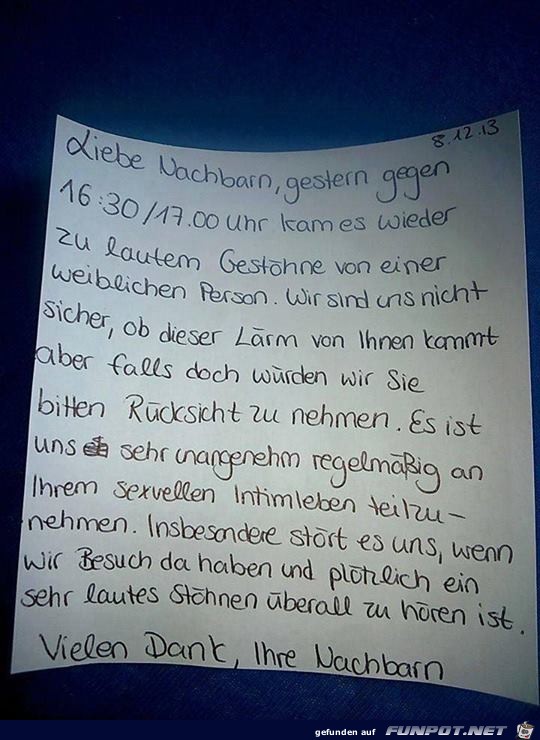 8.12.13
Liebe Nachbarn, gestern gegen
16:30/17.00 Uhr kam es wieder
zu lautem Gestöhne von einer
weiblichen Person. Wir sind uns nicht
sicher, ob dieser Lärm von Ihnen kommt
aber falls doch würden wir Sie
bitten Rücksicht zu nehmen. Es ist
uns sehr unangenehm regelmäßig an
Ihrem sexuellen Intimleben teilzu-
nehmen. Insbesondere stört es uns, wenn
wir Besuch da haben und plötzlich ein
sehr lautes Stöhnen überall zu hören ist.
Vielen Dank, Ihre Nachbarn
gefunden auf FUNPOT.NET